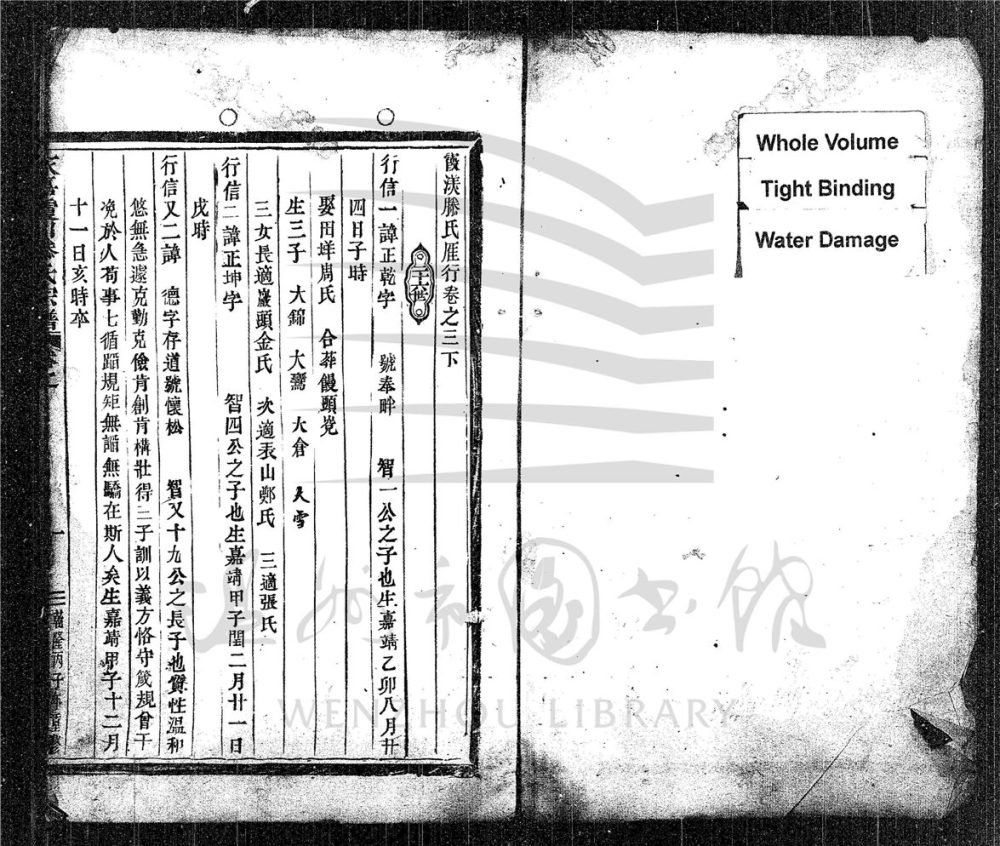 Whole Volume
Tight Binding
Water Damage
渼滕氏雁行卷之三下
行信一諱正乾字 號奉畔 智一公之子也生嘉靖乙卯八月廿
四日子時
娶田垟周氏 合葬饅頭
生三子 大錦 大鸞 大倉 大雪
三女長適巖頭金氏 次適表山鄭氏 三適張氏
行信二諱正坤字 智四公之子也生嘉靖甲子閏二月廿一日
戌時
行信又二諱 德字存道號懷松 智又十九公之長子也質性溫和
悠無急遽克勤克儉肯創肯構壯得二子訓以義方恪守成規曾干
於人苟事七循蹈規矩無諂無驕在斯人矣生嘉靖甲子十二月
十一日亥時卒
温州市圖書館
WENZHOU LIBRARY